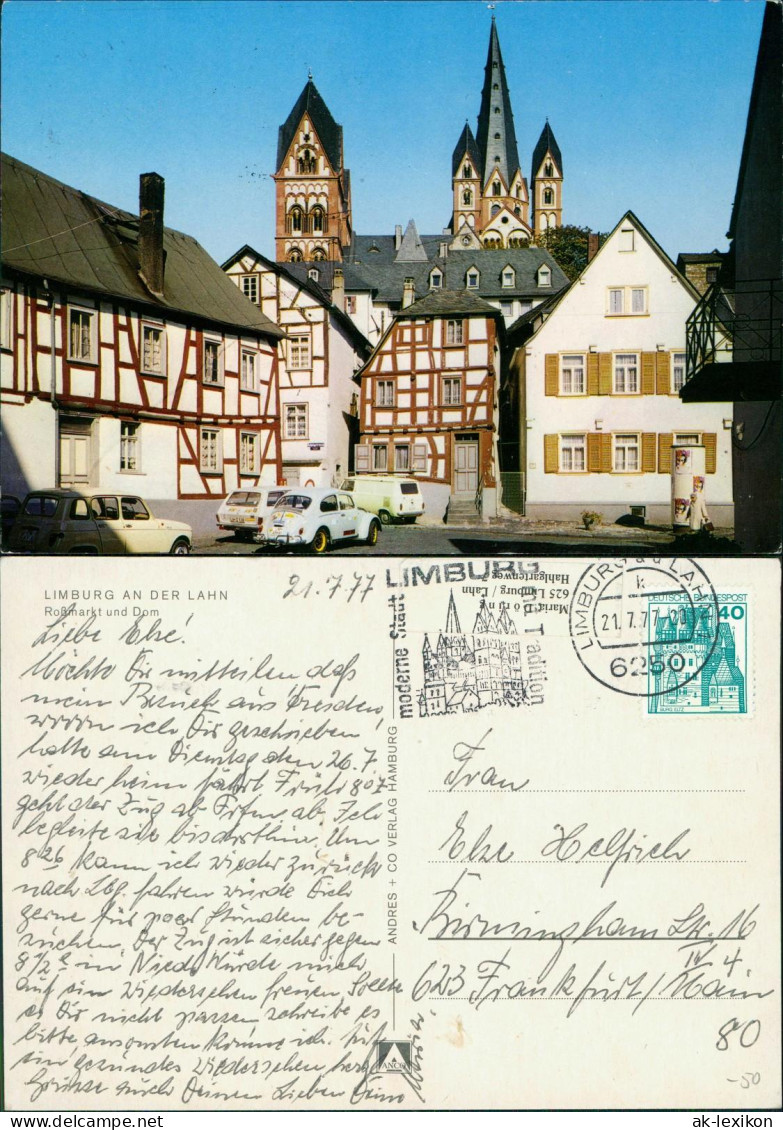 LIMBURG AN DER LAHN
Roßmarkt und Dom
21.7.77
Liebe Else!
Möchte Dir mitteilen daß
mein Besuch aus Dresden,
wovon ich Dir geschrieben
hatte am Dienstag den 26.7
wieder heim fährt. Früh 807
geht der Zug ab Ffm ab. Ich
begleite sie bis dorthin. Um
826 kann ich wieder zurück
nach Lbg. fahren würde Dich
gerne für paar Stunden be-
suchen. Der Zug ist sicher gegen
8 1/2 in Nied. Würde mich
auf ein Wiedersehen freuen. Sollte
es Dir nicht passen schreibe es
bitte ansonsten komme ich. Auf
ein gesundes Wiedersehen herzl
Grüsse auch Deinen Lieben Deine
ANDRES + CO VERLAG HAMBURG
ANCO
LIMBURG
moderne Stadt
und Tradition
Maria
625 Limburg / Lahn
Hahlgartenweg
LIMBURG a d LAHN
k
21.7.77-20
6250
DEUTSCHE BUNDESPOST
40
BURG ELTZ
Frau
Else Helfrich
Birmingham Str. 16
IV 4
623 Frankfurt/Main
80
-50
ak-lexikon